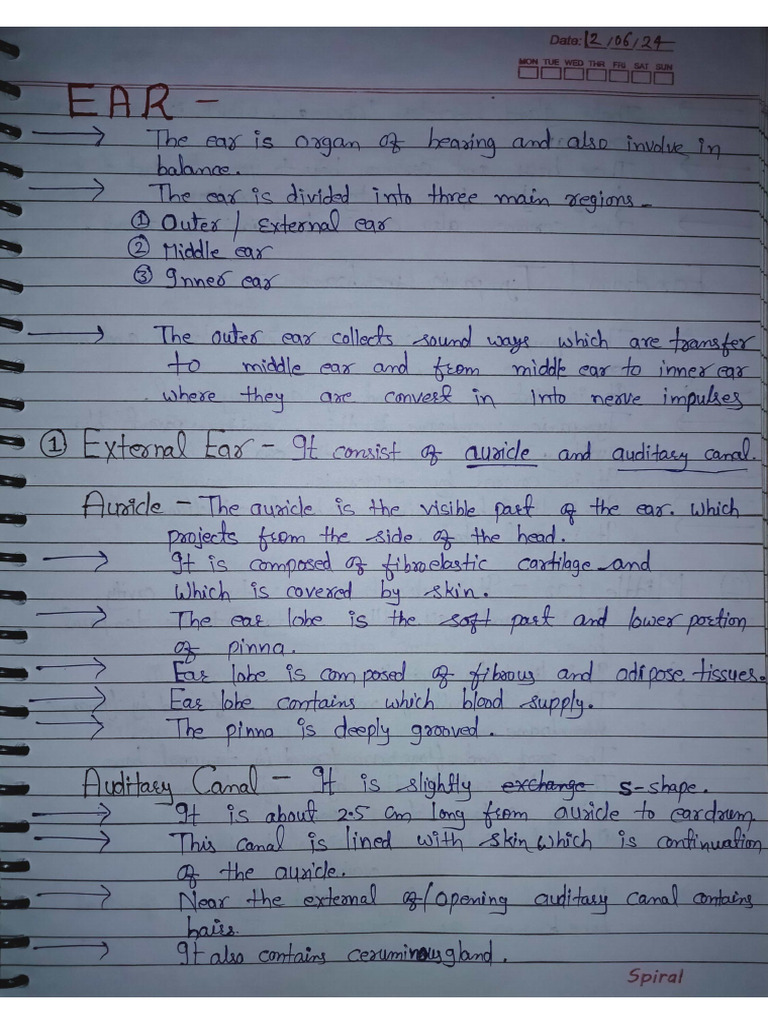 Date: 12/06/24
MON TUE WED THR FRI SAT SUN
EAR -
→ The ear is organ of hearing and also involve in
balance.
→ The ear is divided into three main regions -
① Outer / External ear
② Middle ear
③ Inner ear
→ The outer ear collects sound ways which are transfer
to middle ear and from middle ear to inner ear
where they are convert in into nerve impulses
① External Ear - It consist of auricle and auditary canal.
Auricle - The auricle is the visible part of the ear. which
projects from the side of the head.
→ It is composed of fibroelastic cartilage and
which is covered by skin.
→ The ear lobe is the soft part and lower portion
of pinna.
→ Ear lobe is composed of fibrous and adipose tissues.
→ Ear lobe contains which blood supply.
→ The pinna is deeply grooved.
Auditary Canal - It is slightly exchange S-shape.
→ It is about 2.5 cm long from auricle to eardrum
→ This canal is lined with skin which is continuation
of the auricle.
→ Near the external of/opening auditary canal contains
hairs.
→ It also contains ceruminous gland.
Spiral